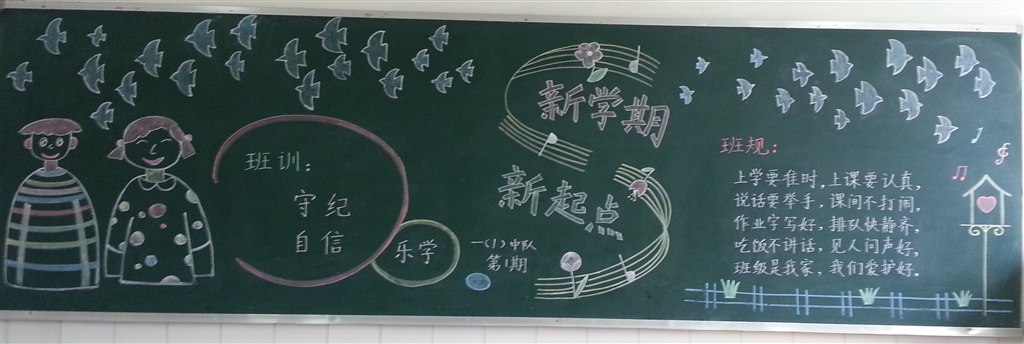 班训：
守纪
自信
乐学
一(1)中队
第1期
新学期
新起点
班规：
上学要准时，上课要认真，
说话要举手，课间不打闹，
作业字写好，排队快静齐，
吃饭不讲话，见人问声好，
班级是我家，我们爱护好。